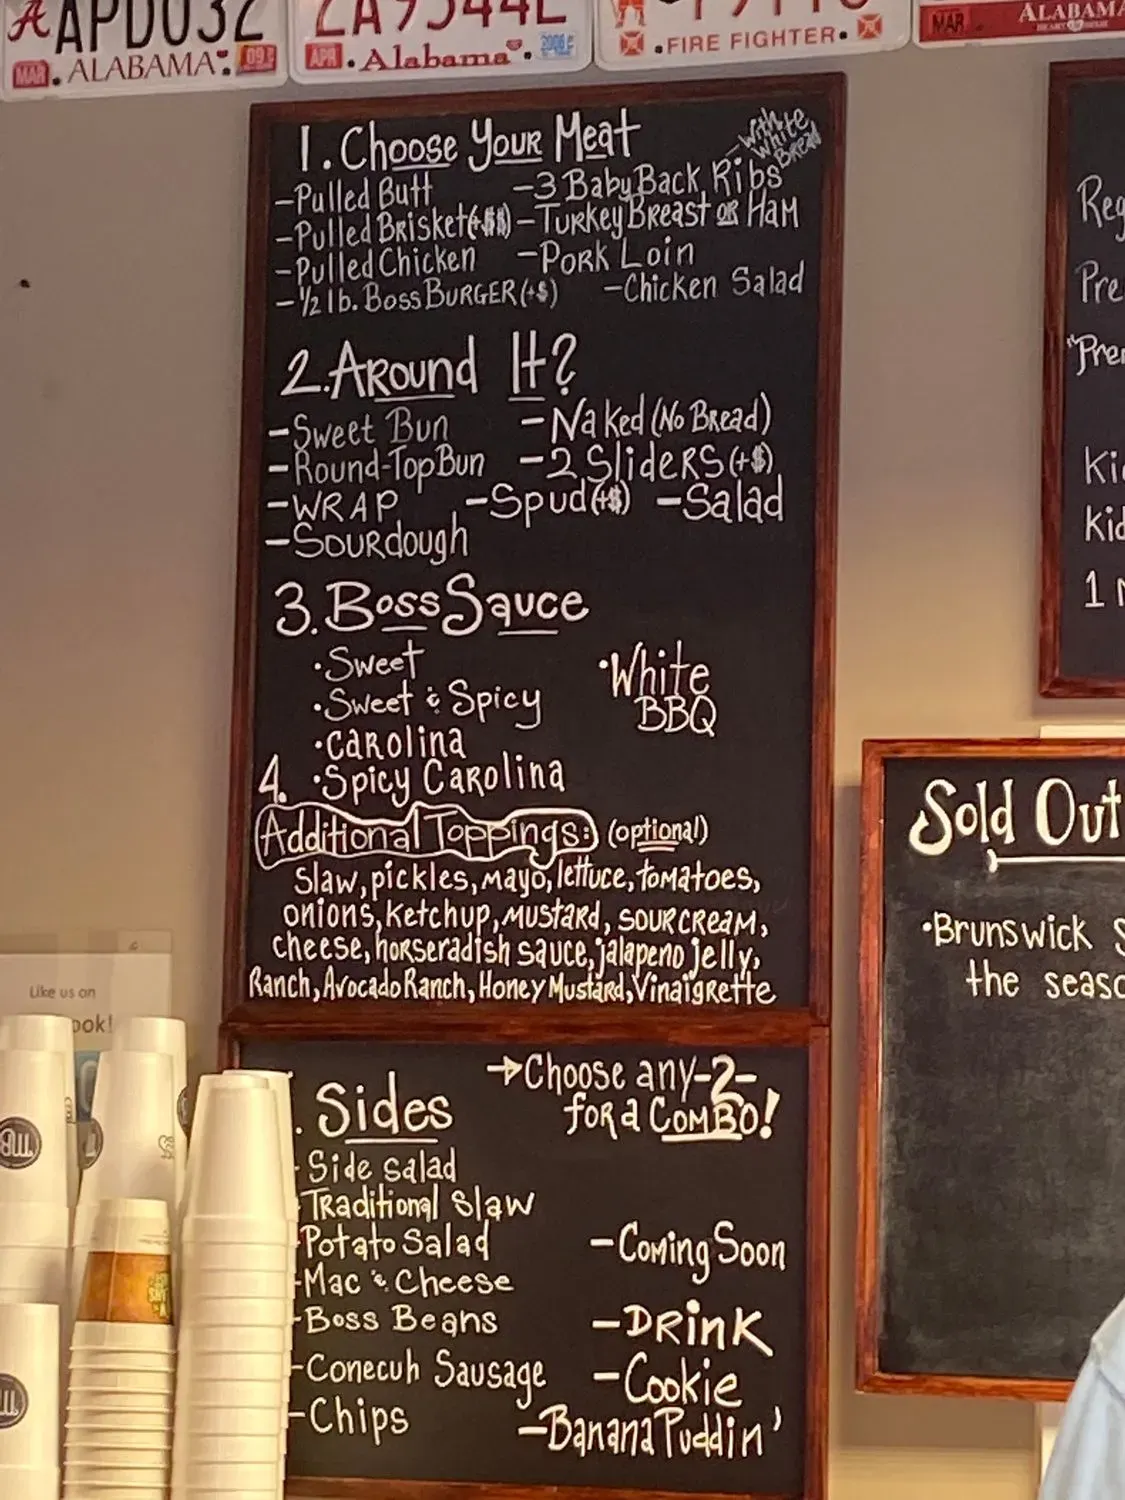 APD032
MAR ALABAMA 09
ZA9544L
APR Alabama
FIRE FIGHTER
MAR ALABAMA
1. Choose Your Meat
-With White Bread
-Pulled Butt -3 Baby Back Ribs
-Pulled Brisket(+$$) -Turkey Breast or Ham
-Pulled Chicken -Pork Loin
-1/2 lb. Boss Burger(+$) -Chicken Salad
2. Around It?
-Sweet Bun -Naked (No Bread)
-Round-Top Bun -2 Sliders(+$)
-Wrap -Spud(+$) -Salad
-Sourdough
3. Boss Sauce
·Sweet ·White
·Sweet & Spicy BBQ
·Carolina
4. ·Spicy Carolina
Additional Toppings: (optional)
Slaw, pickles, mayo, lettuce, tomatoes,
onions, ketchup, mustard, sour cream,
cheese, horseradish sauce, jalapeno jelly,
Ranch, Avocado Ranch, Honey Mustard, Vinaigrette
→Choose any -2-
for a Combo!
. Sides
-Side Salad
-Traditional Slaw
-Potato Salad -Coming Soon
-Mac & Cheese
-Boss Beans -Drink
-Conecuh Sausage -Cookie
-Chips -Banana Puddin'
Sold Out
·Brunswick
the
Like us on